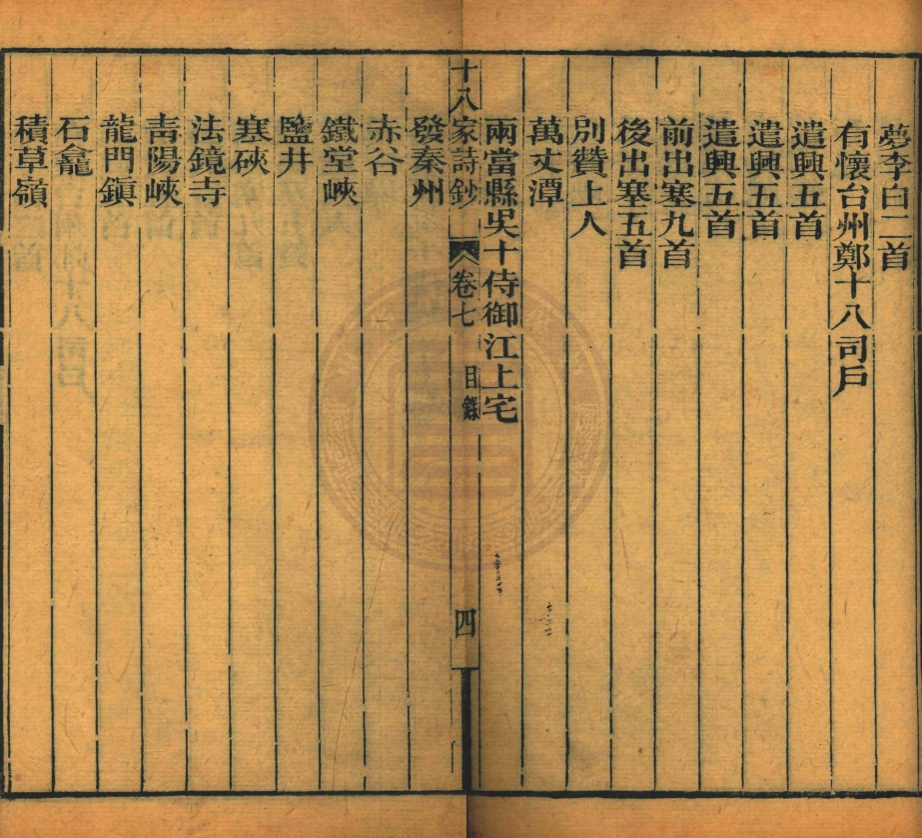 夢李白二首
有懷台州鄭十八司戶
遣興五首
遣興五首
遣興五首
前出塞九首
後出塞五首
別贊上人
萬丈潭
兩當縣吳十侍御江上宅
十八家詩鈔 卷七 目錄 四
發秦州
赤谷
鐵堂峽
鹽井
寒硤
法鏡寺
靑陽峽
龍門鎭
石龕
積草嶺